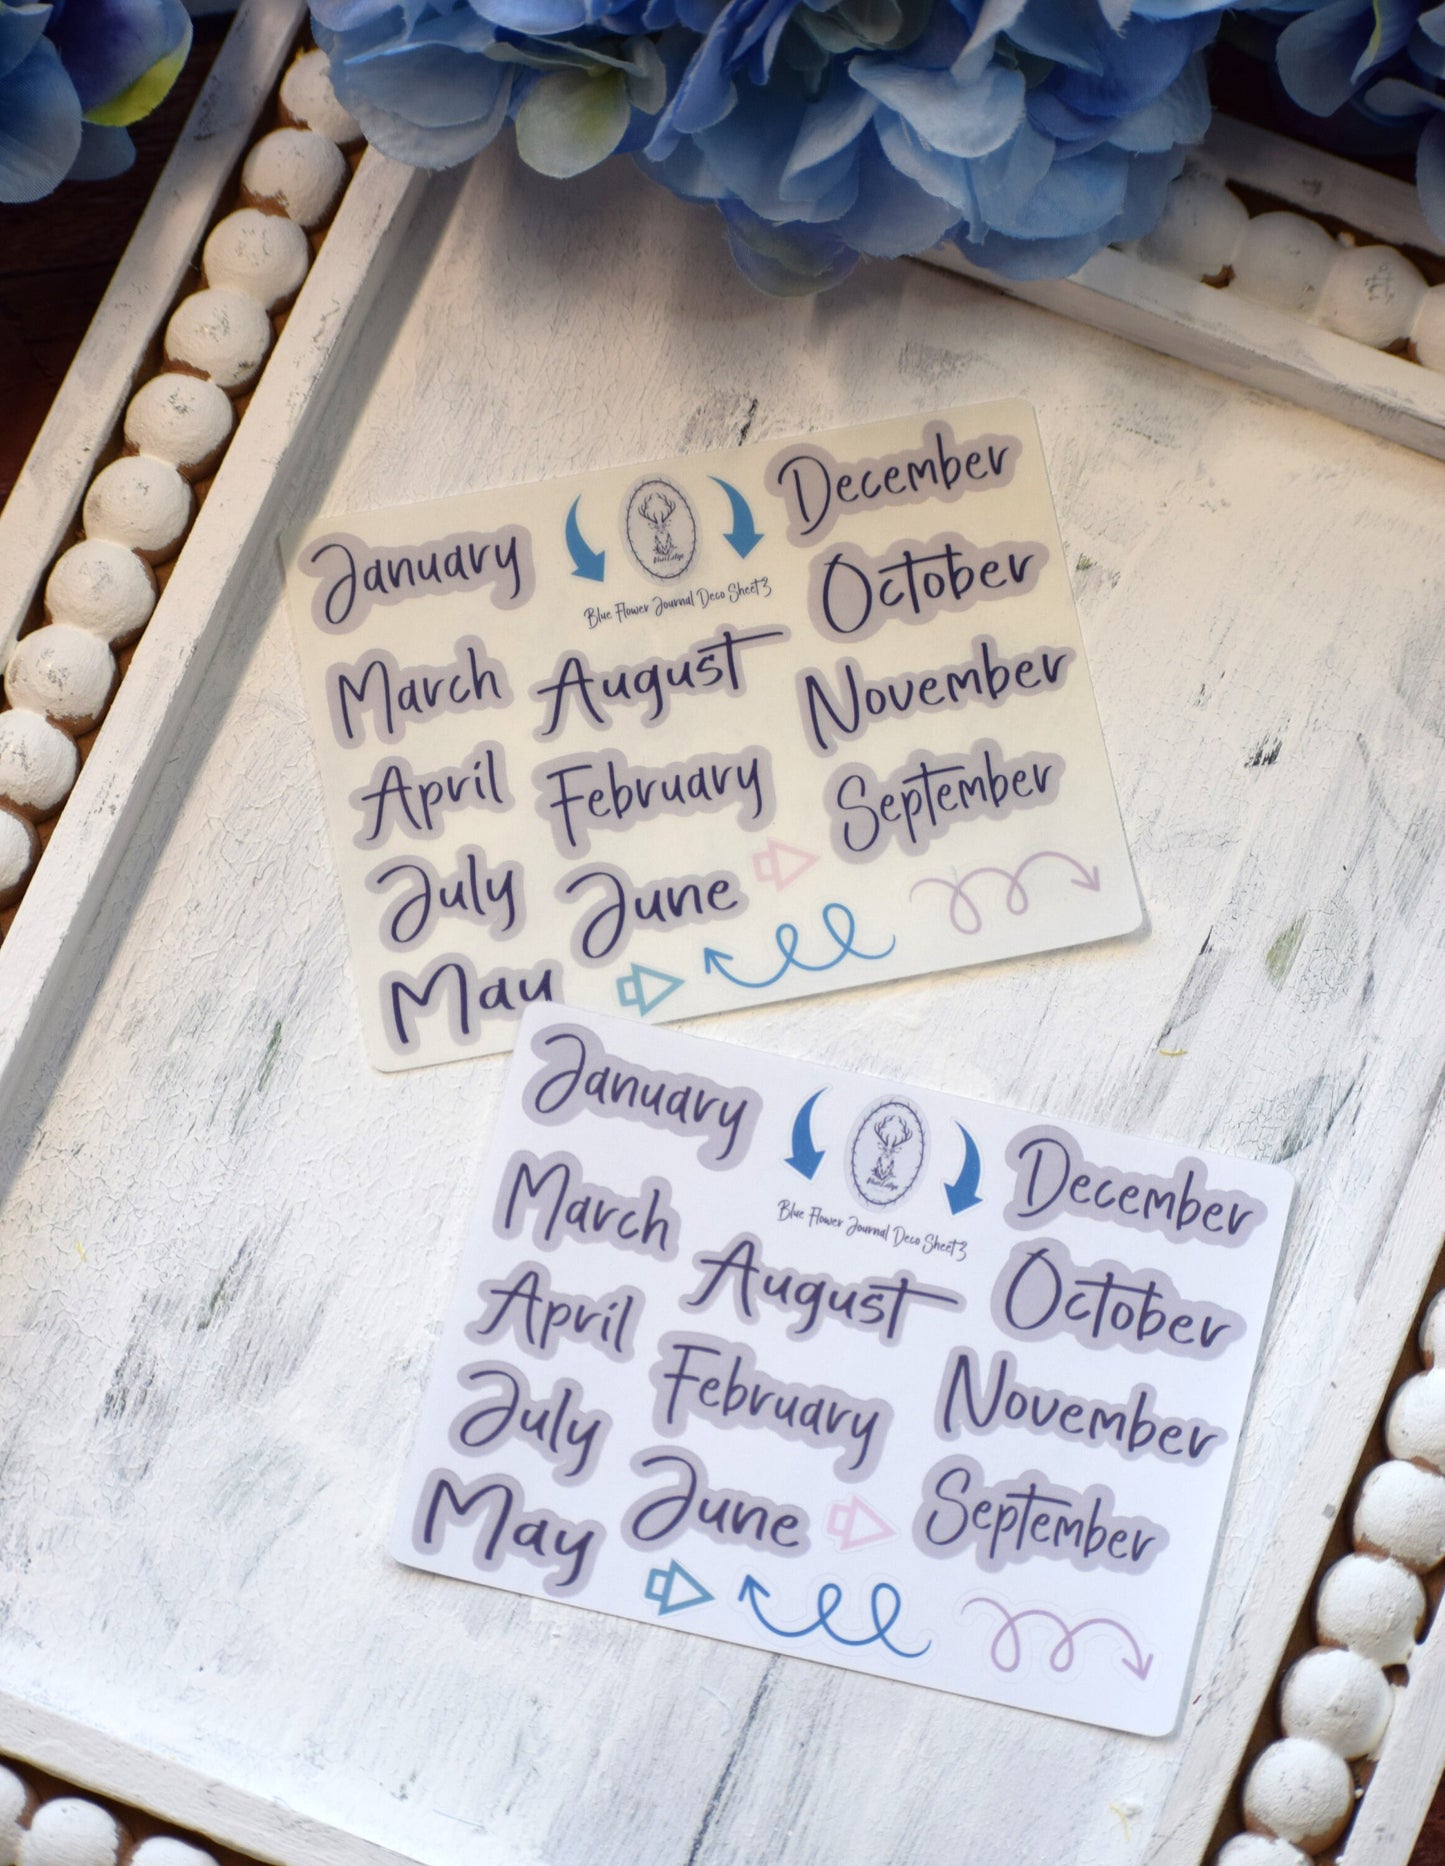 January
March
April
July
May
Blue Flower Journal Deco Sheet 3
August
February
June
December
October
November
September
January
March
April
July
May
Blue Flower Journal Deco Sheet 3
August
February
June
December
October
November
September